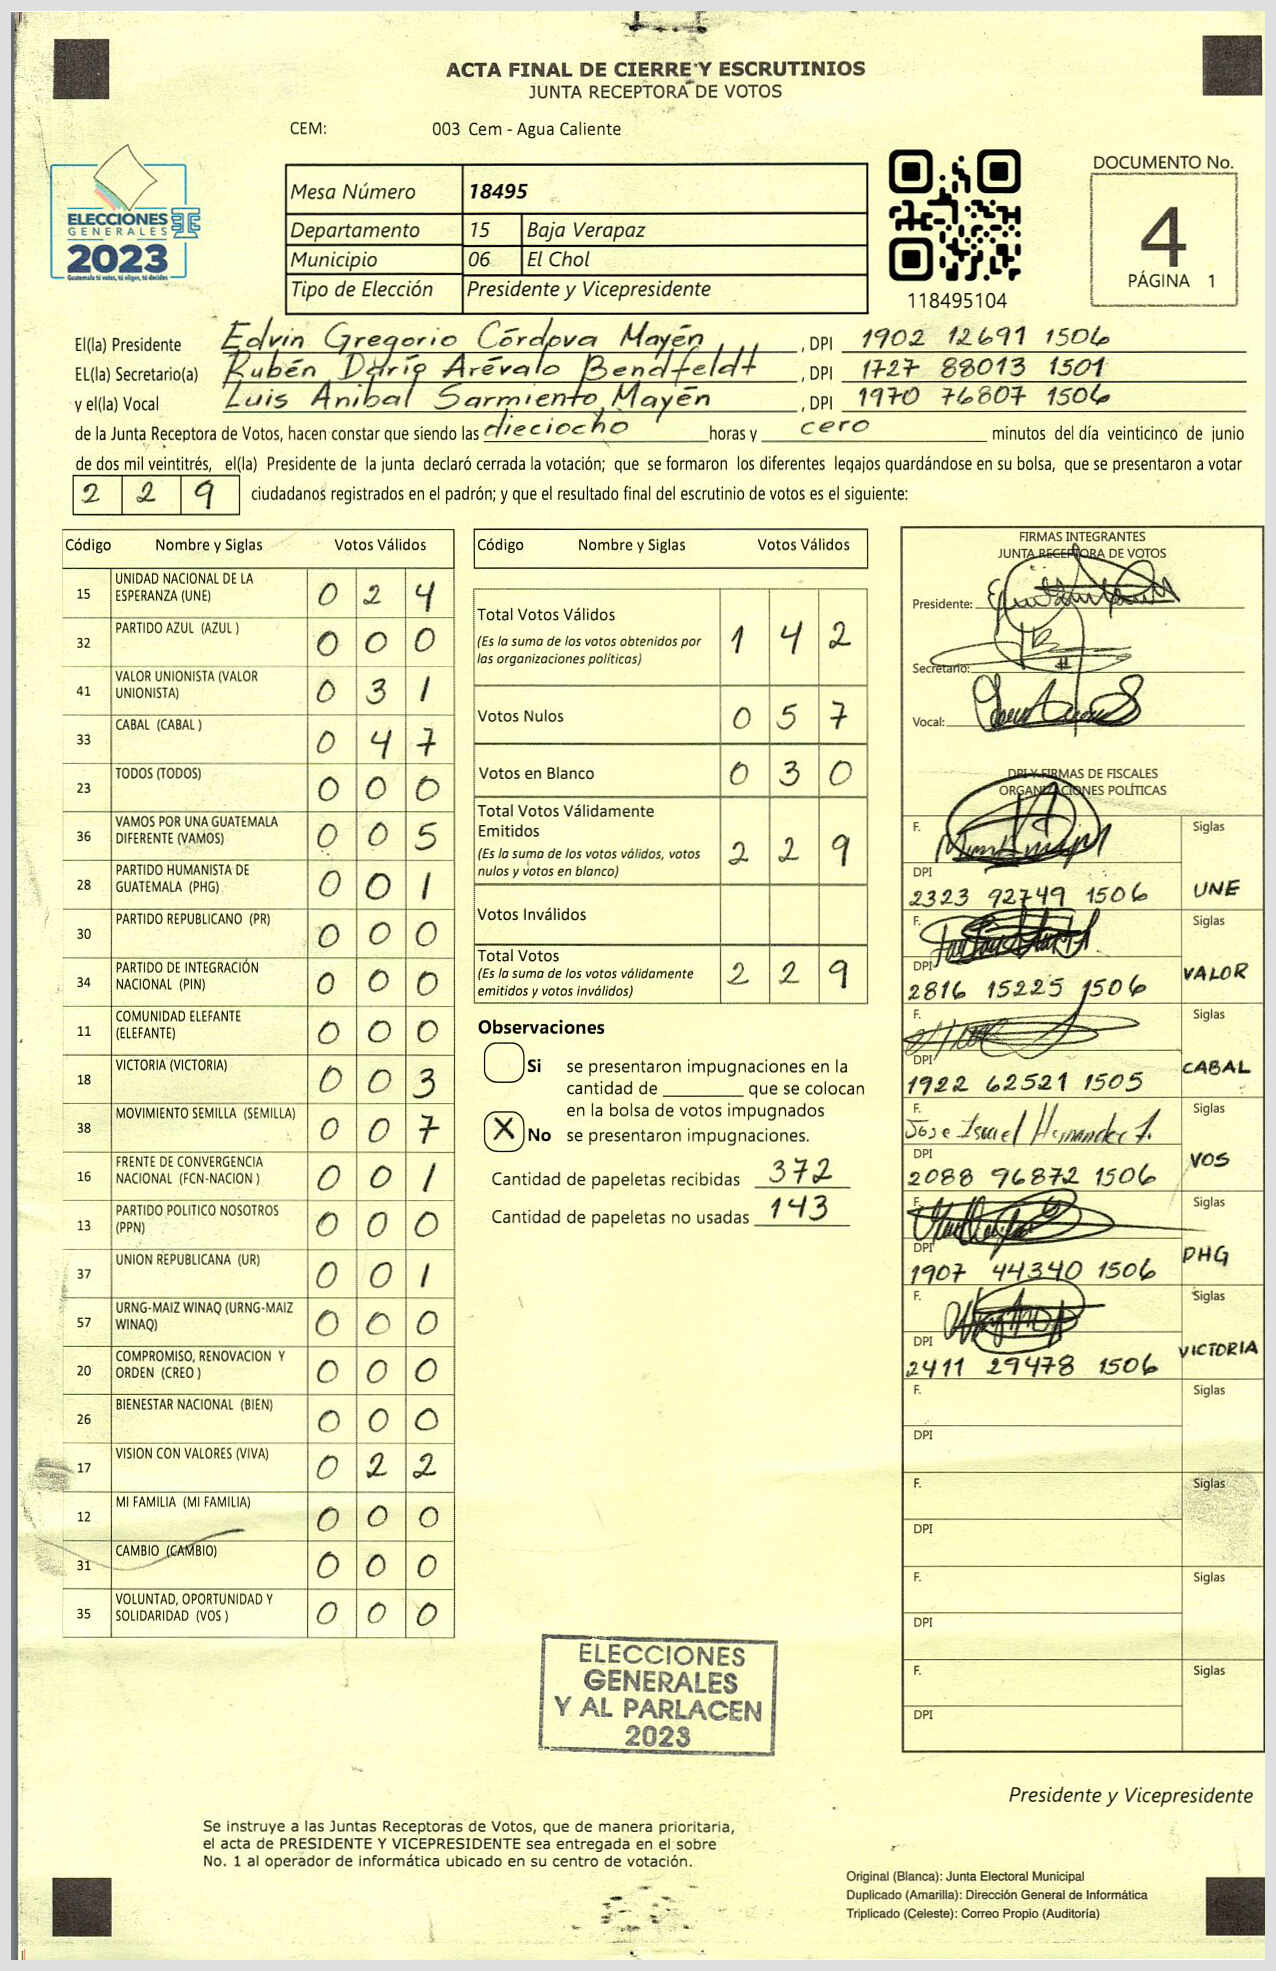 ACTA FINAL DE CIERRE Y ESCRUTINIOS
JUNTA RECEPTORA DE VOTOS
CEM: 003 Cem - Agua Caliente
ELECCIONES
GENERALES
2023
Guatemala tú votas, tú eliges, tú decides
Mesa Número 18495
Departamento 15 Baja Verapaz
Municipio 06 El Chol
Tipo de Elección Presidente y Vicepresidente
118495104
DOCUMENTO No.
4
PÁGINA 1
El(la) Presidente Edvin Gregorio Córdova Mayén, DPI 1902 12691 1506
EL(la) Secretario(a) Rubén Darío Arévalo Bendfeldt, DPI 1727 88013 1501
y el(la) Vocal Luis Anibal Sarmiento Mayén, DPI 1970 76807 1506
de la Junta Receptora de Votos, hacen constar que siendo las dieciocho horas y cero minutos del día veinticinco de junio
de dos mil veintitrés, el(la) Presidente de la junta declaró cerrada la votación; que se formaron los diferentes legajos guardándose en su bolsa, que se presentaron a votar
2 2 9 ciudadanos registrados en el padrón; y que el resultado final del escrutinio de votos es el siguiente:
Código Nombre y Siglas Votos Válidos
15 UNIDAD NACIONAL DE LA ESPERANZA (UNE) 0 2 4
32 PARTIDO AZUL (AZUL ) 0 0 0
41 VALOR UNIONISTA (VALOR UNIONISTA) 0 3 1
33 CABAL (CABAL ) 0 4 7
23 TODOS (TODOS) 0 0 0
36 VAMOS POR UNA GUATEMALA DIFERENTE (VAMOS) 0 0 5
28 PARTIDO HUMANISTA DE GUATEMALA (PHG) 0 0 1
30 PARTIDO REPUBLICANO (PR) 0 0 0
34 PARTIDO DE INTEGRACIÓN NACIONAL (PIN) 0 0 0
11 COMUNIDAD ELEFANTE (ELEFANTE) 0 0 0
18 VICTORIA (VICTORIA) 0 0 3
38 MOVIMIENTO SEMILLA (SEMILLA) 0 0 7
16 FRENTE DE CONVERGENCIA NACIONAL (FCN-NACION ) 0 0 1
13 PARTIDO POLITICO NOSOTROS (PPN) 0 0 0
37 UNION REPUBLICANA (UR) 0 0 1
57 URNG-MAIZ WINAQ (URNG-MAIZ WINAQ) 0 0 0
20 COMPROMISO, RENOVACION Y ORDEN (CREO ) 0 0 0
26 BIENESTAR NACIONAL (BIEN) 0 0 0
17 VISION CON VALORES (VIVA) 0 2 2
12 MI FAMILIA (MI FAMILIA) 0 0 0
31 CAMBIO (CAMBIO) 0 0 0
35 VOLUNTAD, OPORTUNIDAD Y SOLIDARIDAD (VOS ) 0 0 0
Código Nombre y Siglas Votos Válidos
Total Votos Válidos 1 4 2
(Es la suma de los votos obtenidos por
las organizaciones políticas)
Votos Nulos 0 5 7
Votos en Blanco 0 3 0
Total Votos Válidamente
Emitidos 2 2 9
(Es la suma de los votos válidos, votos
nulos y votos en blanco)
Votos Inválidos
Total Votos 2 2 9
(Es la suma de los votos válidamente
emitidos y votos inválidos)
Observaciones
Si se presentaron impugnaciones en la
cantidad de ________ que se colocan
en la bolsa de votos impugnados
X No se presentaron impugnaciones.
Cantidad de papeletas recibidas 372
Cantidad de papeletas no usadas 143
FIRMAS INTEGRANTES
JUNTA RECEPTORA DE VOTOS
Presidente:
Secretario:
Vocal:
DPI Y FIRMAS DE FISCALES
ORGANIZACIONES POLÍTICAS
F. Siglas
DPI
2323 92749 1506 UNE
F. Siglas
DPI
2816 15225 1506 VALOR
F. Siglas
DPI
1922 62521 1505 CABAL
F. Siglas
José Ismael Hernandez
DPI
2088 96872 1506 VOS
F. Siglas
DPI
1907 44340 1506 PHG
F. Siglas
DPI
2411 29478 1506 VICTORIA
F. Siglas
DPI
F. Siglas
DPI
F. Siglas
DPI
F. Siglas
DPI
ELECCIONES
GENERALES
Y AL PARLACEN
2023
Presidente y Vicepresidente
Se instruye a las Juntas Receptoras de Votos, que de manera prioritaria,
el acta de PRESIDENTE Y VICEPRESIDENTE sea entregada en el sobre
No. 1 al operador de informática ubicado en su centro de votación.
Original (Blanca): Junta Electoral Municipal
Duplicado (Amarilla): Dirección General de Informática
Triplicado (Celeste): Correo Propio (Auditoría)